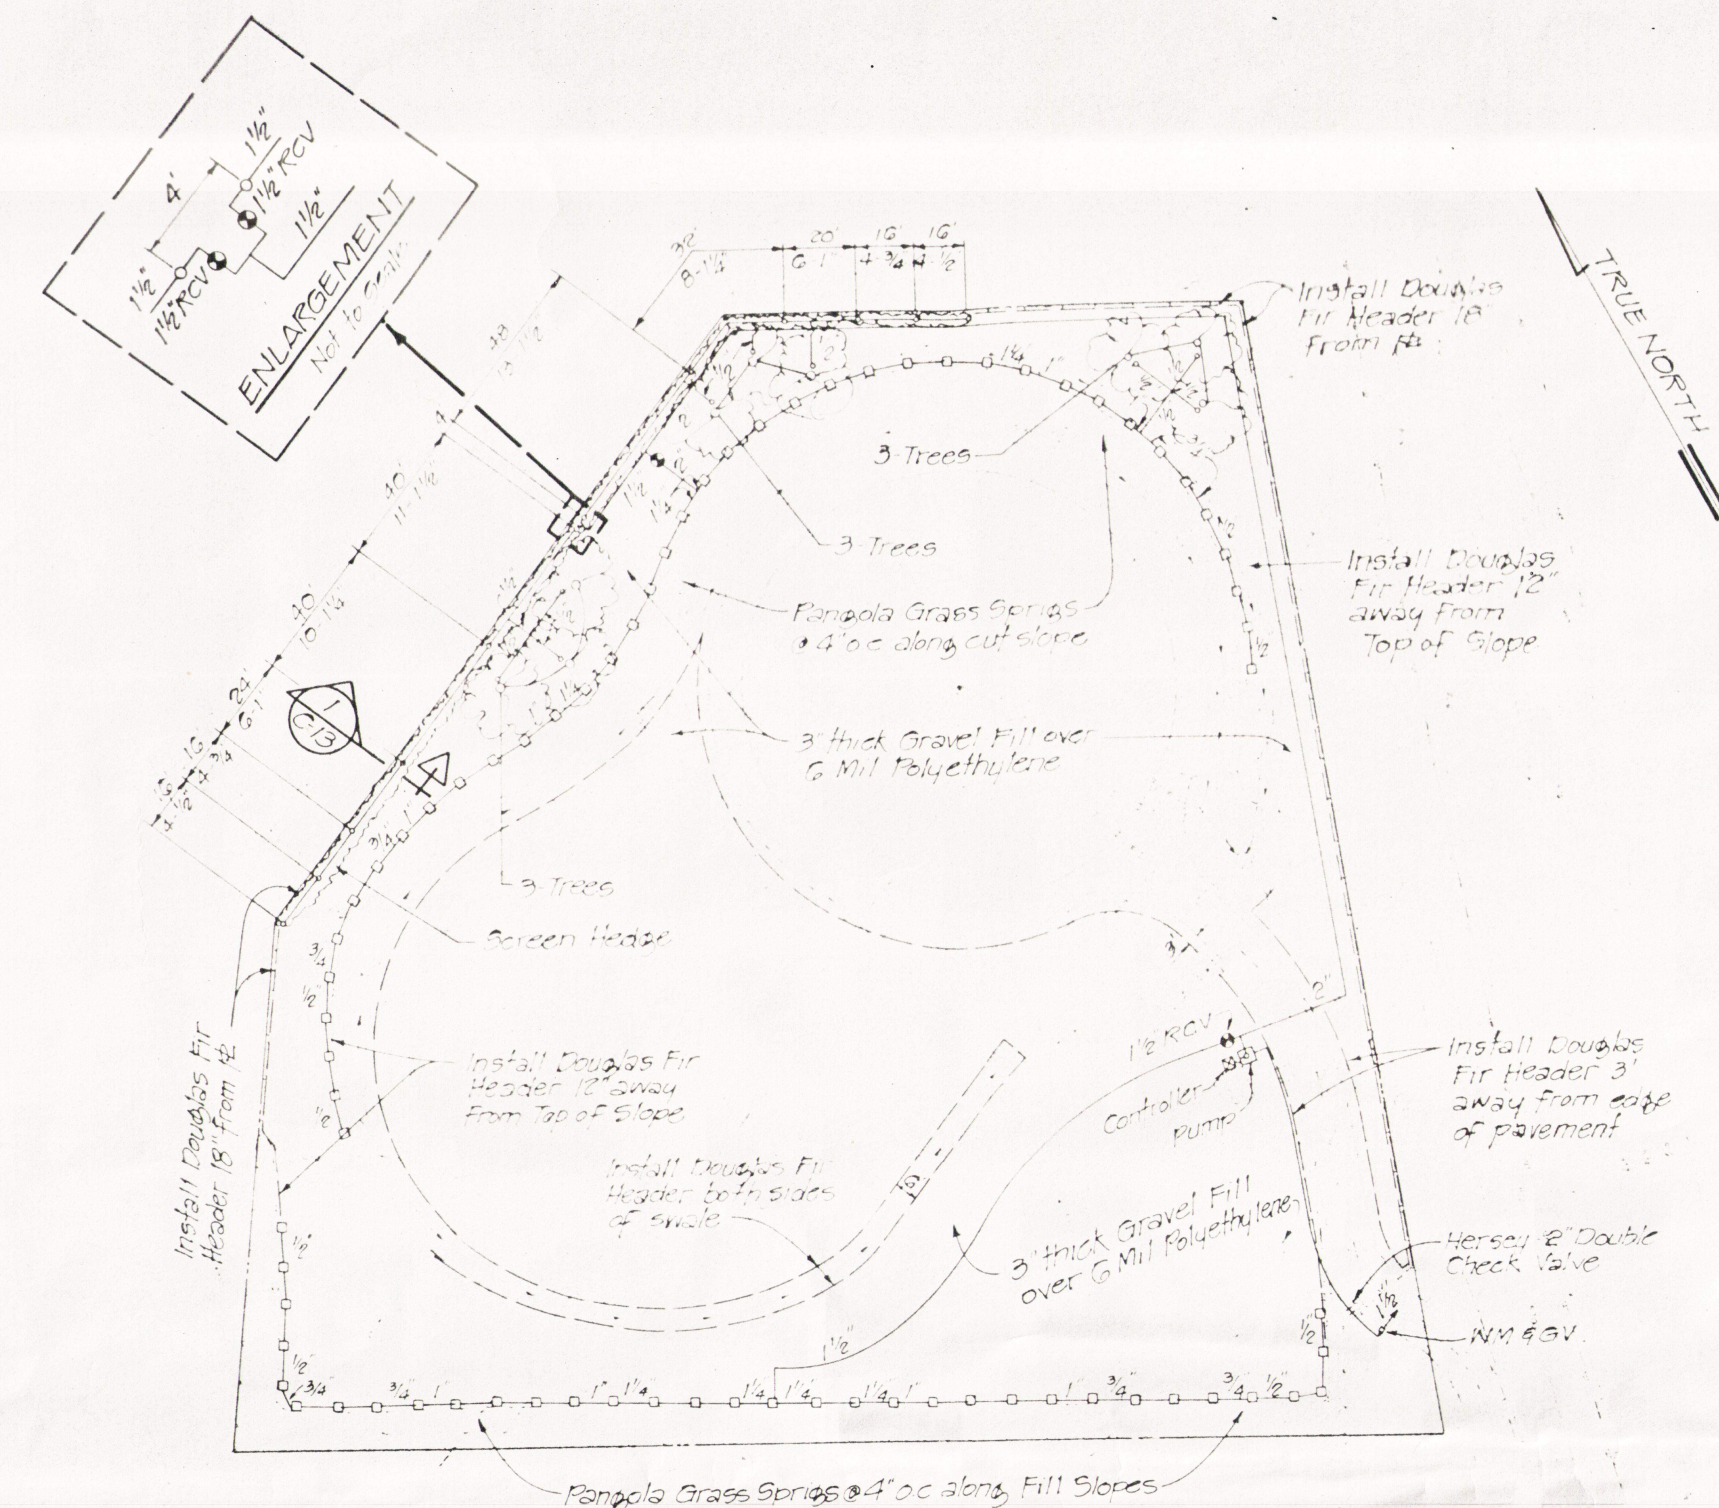 1½"
1½" RCV
4'
1½"
1½" RCV
1½"
ENLARGEMENT
Not to Scale
TRUE NORTH
32'
8-1¼"
20'
6-1"
16'
4-¾"
16'
4-½"
48'
13-1½"
4'
40'
11-1½"
40'
10-1¼"
24'
6-1"
16'
4-¾"
16'
4-½"
1
C-13
Install Douglas
Fir Header 18"
From ⅊
3-Trees
3-Trees
Install Douglas
Fir Header 12"
away From
Top of Slope
Pangola Grass Sprigs
@ 4" o.c along cut slope
3" thick Gravel Fill over
6 Mil Polyethylene
3-Trees
Screen Hedge
Install Douglas Fir
Header 18" from ⅊
Install Douglas Fir
Header 12" away
From Top of Slope
Install Douglas Fir
Header both sides
of swale
1½ RCV
2"
3'
6'
Controller
pump
Install Douglas
Fir Header 3'
away from edge
of pavement
3" thick Gravel Fill
over 6 Mil Polyethylene
Hersey 2" Double
Check Valve
1½"
WM & GV
1¼"
1"
½"
½"
½"
½
2"
2"
1½"
1¼
1½"
1¼"
1"
1"
¾"
¾"
½"
½"
½"
½"
¾"
¾"
1"
1"
1¼"
1¼
1¼"
1¼"
1"
1"
¾"
¾"
½"
½"
1½"
Pangola Grass Sprigs @ 4" o.c along Fill Slopes